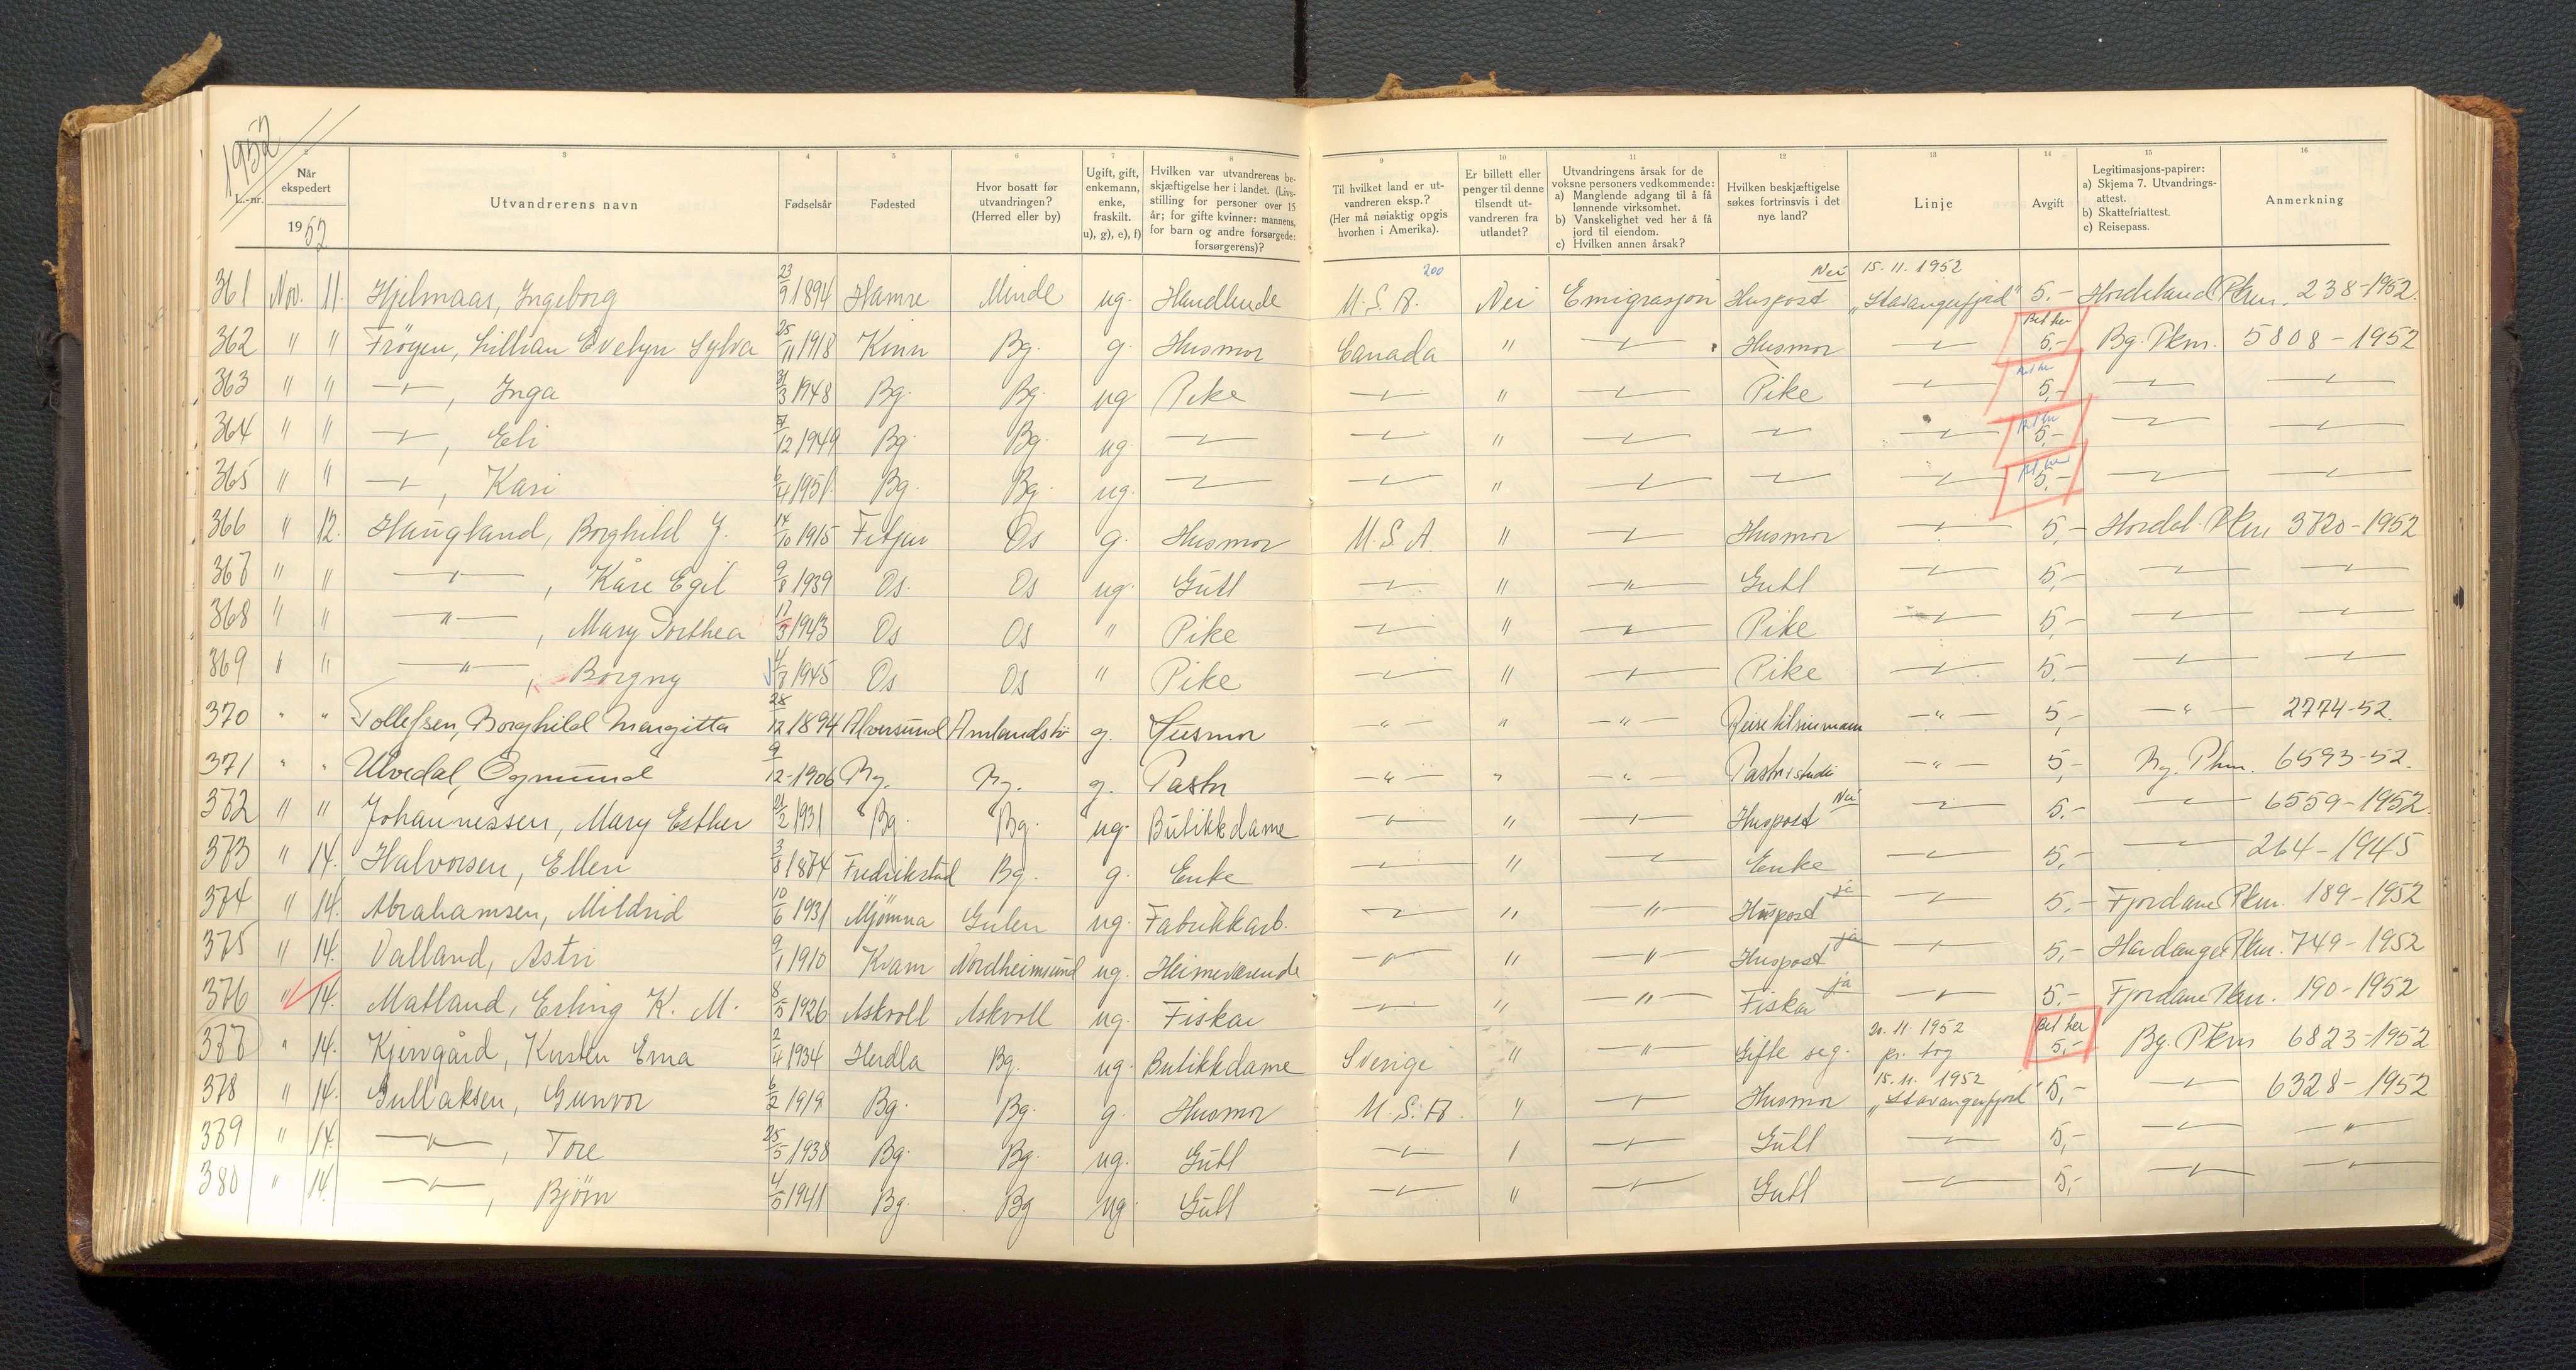 1952
2 3 4 5 6 7 8 9 10 11 12 13 14 15 16
L.-nr. | Når ekspedert 1952 | Utvandrerens navn | Fødselsår | Fødested | Hvor bosatt før utvandringen? (Herred eller by) | Ugift, gift, enkemann, enke, fraskilt. u), g), e), f) | Hvilken var utvandrerens beskjæftigelse her i landet. (Livsstilling for personer over 15 år; for gifte kvinner: mannens, for barn og andre forsørgede: forsørgerens)? | Til hvilket land er utvandreren eksp.? (Her må nøiaktig opgis hvorhen i Amerika). | Er billett eller penger til denne tilsendt utvandreren fra utlandet? | Utvandringens årsak for de voksne personers vedkommende: a) Manglende adgang til å få lønnende virksomhet. b) Vanskelighet ved her å få jord til eiendom. c) Hvilken annen årsak? | Hvilken beskjæftigelse søkes fortrinsvis i det nye land? | Linje | Avgift | Legitimasjons-papirer: a) Skjema 7. Utvandringsattest. b) Skattefriattest. c) Reisepass. | Anmerkning
200 Nei 15.11.1952
361 Nov. 11. Hjelmaas, Ingeborg 23/9 1894 Hamre Minde ug. U.S.A. Nei Emigrasjon Huspost „Stavangerfjord" 5.- Hordaland Pkm. 238-1952.
362 " " Frøyen, Lillian Evelyn Sylva 25/11 1918 Kinn Bg. g. Husmor Canada " —"— Husmor —"— Bet her 5.- Bg. Pkm. 5808-1952
363 " " —"—, Inga 31/3 1948 Bg. Bg. ug Pike —"— " —"— Pike —"— Bet her 5.- —"— —"—
364 " " —"—, Eli /12 1949 Bg. Bg. ug —"— —"— " —"— —"— —"— Bet her 5.- —"— —"—
365 " " —"—, Kari 6/4 1951. Bg. Bg. ug. —"— —"— " —"— —"— —"— Bet her 5.- —"— —"—
366 " 12. Haugland, Borghild J. 14/10 1915 Fitjar Os g. Husmor U.S.A. " —"— Husmor —"— 5.- Hordal. Pkm 3720-1952
367 " " —"—, Kåre Egil 9/8 1939 Os. Os ug. Gutt —"— " —"— Gutt —"— 5.- —"— —"—
368 " " —"—, Mary Dorthea 17/3 1943 Os Os " Pike —"— " —"— Pike —"— 5.- —"— —"—
369 " " —"—, Borgny 4/7 1945 Os Os " Pike —"— " —"— Pike —"— 5.- —"— —"—
370 " " Tollefsen, Borghild Margitta 28/12 1894 Alversund g. Husmor —"— " —"— Reise til sin mann —"— 5,- —"— 2774-52.
371 " " Ulvedal, Ogmund 9/12-1906 Bg. Bg. g. Pastor —"— " —"— —"— 5,- Bg. Pkm. 6593-52.
372 " " Johannessen, Mary Esther 21/2 1931 Bg. Bg. ug. Butikkdame —"— " —"— Huspost Nei —"— 5.- —"— 6559-1952.
373 " 14. Halvorsen, Ellen 3/8 1874 Fredrikstad Bg. g. Enke —"— " —"— Enke —"— 5.- —"— 264-1945
374 " 14. Abrahamsen, Mildrid 10/6 1931 Mjömna Gulen ug. Fabrikkarb. —"— " —"— Huspost ja —"— 5.- Fjordane Pkm. 189-1952
375 " 14. Valland, Astri 9/1 1910 Kvam Nordheimsund ug. Heimeværende —"— " —"— Huspost ja —"— 5,- Hardanger Pkm. 749-1952
376 " 14. Matland, Erling K. M. 8/5 1926 Askvoll Askvoll ug. Fiskar —"— " —"— Fiskar ja —"— 5.- Fjordane Pkm. 190-1952
377 " 14. Kjervgård, Kirsten Erna 2/4 1934 Herdla Bg. ug. Butikkdame Sverige " —"— Gifte seg. 20.11.1952 pr. tog Bet her 5.- Bg. Pkm 6823-1952
378 " 14. Gullaksen, Gunvor 6/2 1919 Bg. Bg. g. Husmor U.S.A. " —"— Husmor 15.11.1952 „Stavangerfjord" 5,- —"— 6328-1952
379 " 14. —"—, Tore 25/5 1938 Bg. Bg. ug. Gutt —"— " —"— Gutt —"— 5,- —"— —"—
380 " 14. —"—, Bjørn 4/5 1941 Bg. Bg ug. Gutt —"— " —"— Gutt —"— 5,- —"— —"—